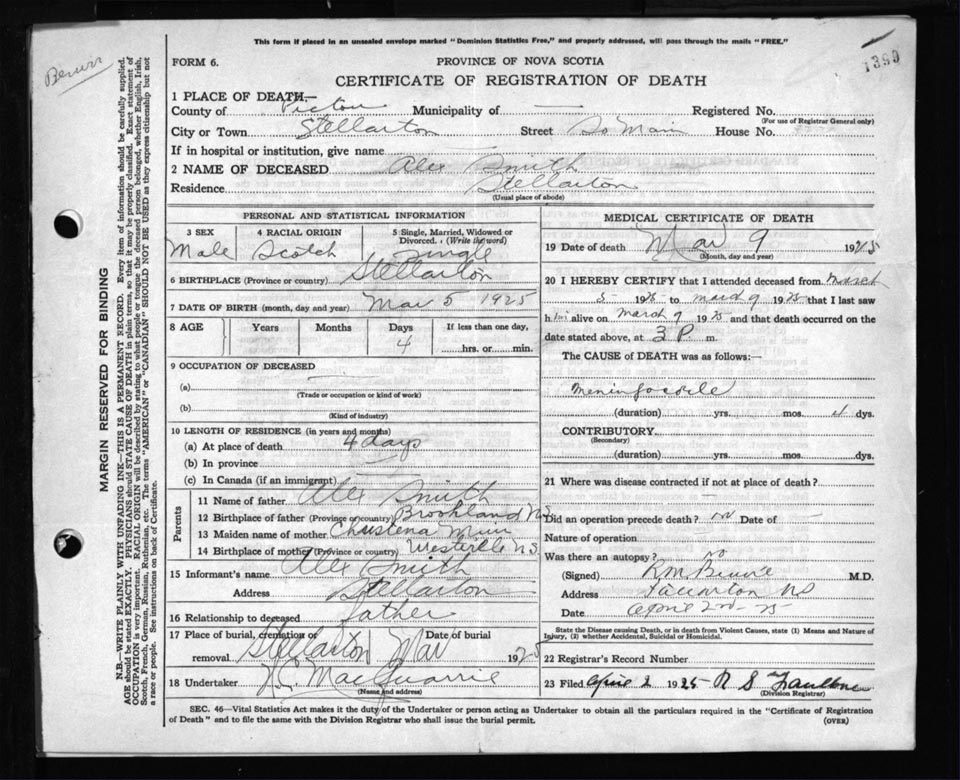 This form if placed in an unsealed envelope marked "Dominion Statistics Free," and properly addressed, will pass through the mails "FREE."
1390
FORM 6.
PROVINCE OF NOVA SCOTIA
CERTIFICATE OF REGISTRATION OF DEATH
MARGIN RESERVED FOR BINDING
N.B.—WRITE PLAINLY WITH UNFADING INK—THIS IS A PERMANENT RECORD. Every item of information should be carefully supplied.
AGE should be stated EXACTLY. PHYSICIANS should STATE CAUSE OF DEATH in plain terms, so that it may be properly classified. Exact statement of
OCCUPATION is very important. RACIAL ORIGIN will be described by stating to what people or tongue the deceased person belonged, whether English, Irish,
Scotch, French, German, Russian, Ruthenian, etc. The terms "AMERICAN" or "CANADIAN" SHOULD NOT BE USED as they express citizenship but not
a race or people. See instructions on back of Certificate.
1 PLACE OF DEATH—
County of Pictou Municipality of — Registered No.
(For use of Registrar General only)
City or Town Stellarton Street So Main House No.
If in hospital or institution, give name
2 NAME OF DECEASED Alex Smith
Residence Stellarton
(Usual place of abode)
PERSONAL AND STATISTICAL INFORMATION
3 SEX Male
4 RACIAL ORIGIN Scotch
5 Single, Married, Widowed or Divorced. (Write the word) Single
6 BIRTHPLACE (Province or country) Stellarton
7 DATE OF BIRTH (month, day and year) Mar 5 1925
8 AGE Years Months Days If less than one day,
4 hrs. or min.
9 OCCUPATION OF DECEASED
(a)
(Trade or occupation or kind of work)
(b)
(Kind of industry)
10 LENGTH OF RESIDENCE (in years and months)
(a) At place of death 4 days
(b) In province
(c) In Canada (if an immigrant)
Parents
11 Name of father Alex Smith
12 Birthplace of father (Province or country) Brookland N.S
13 Maiden name of mother Christena Muir
14 Birthplace of mother (Province or country) Westville N.S
15 Informant's name Alex Smith
Address Stellarton
16 Relationship to deceased father
17 Place of burial, cremation or removal Stellarton Date of burial Mar 1925
18 Undertaker MacQuarrie
(Name and address)
MEDICAL CERTIFICATE OF DEATH
19 Date of death Mar 9 1925
(Month, day and year)
20 I HEREBY CERTIFY that I attended deceased from March
5 1925 to March 9 1925 that I last saw
him alive on March 9 1925 and that death occurred on
date stated above, at 3 P. m.
The CAUSE of DEATH was as follows:—
Meningocoele
(duration) yrs. mos. 4 dys.
CONTRIBUTORY
(Secondary)
(duration) yrs. mos. dys.
21 Where was disease contracted if not at place of death?
Did an operation precede death? no Date of —
Nature of operation
Was there an autopsy? no
(Signed) M.D.
Address Stellarton NS
Date April 2nd 25
State the Disease causing Death, or in death from Violent Causes, state (1) Means and Nature of
Injury, (2) whether Accidental, Suicidal or Homicidal.
22 Registrar's Record Number
23 Filed April 2 1925 R S
(Division Registrar)
SEC. 46—Vital Statistics Act makes it the duty of the Undertaker or person acting as Undertaker to obtain all the particulars required in the "Certificate of Registration
of Death" and to file the same with the Division Registrar who shall issue the burial permit.
(OVER)